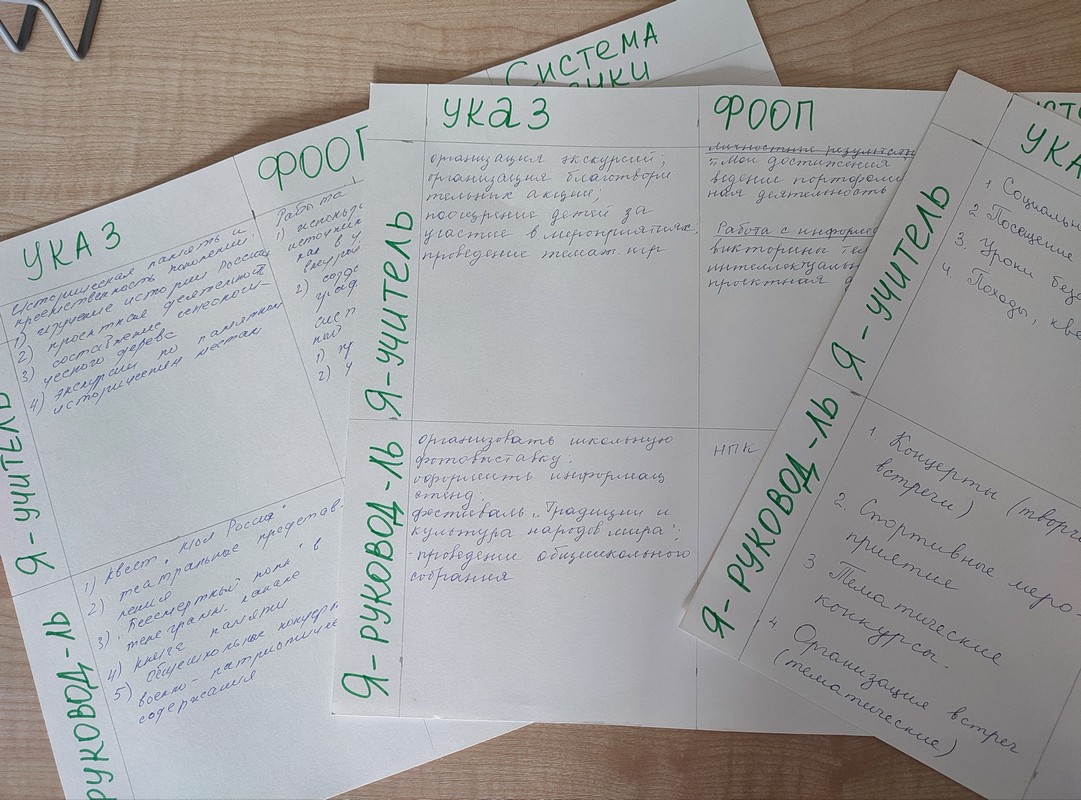 Система
УКАЗ
ФООП
Историческая память и
преемственность поколений
1) изучение истории России
2) проектная деятельность
3) составление генеалоги-
ческого дерева
4) экскурсии по памятным
историческим местам
Работа
1)
2)
1)
2)
Я-УЧИТЕЛЬ
РУКОВОД-ЛЬ
1) квест "моя Россия"
2) театральное представ-
ление
3) "Бессмертный полк" в
телеграмм-канале
4) книга памяти
5) общешкольные
военно-патриотиче
содержания
УКАЗ
ФООП
Я-УЧИТЕЛЬ
организация экскурсий;
организация благотвори
тельных акций;
поощрение детей за
участие в мероприятиях.
проведение темат.
личностные результаты
"Мои достижения
ведение портфолио
ная деятельность
Работа с информа
викторины
интеллектуаль
проектная д
Я-РУКОВОД-ЛЬ
организовать школьную
фотовыставку;
оформить информац
стенд;
фестиваль "Традиции и
культура народов мира";
-проведение общешкольного
собрания
НПК
УКА
Я-УЧИТЕЛЬ
1 Социальн
2 Посещение
3. Уроки без
4 Походы, кве
Я-РУКОВОД-ЛЬ
1. Концерты (творч
встречи)
2. Спортивные меро-
приятие
3 Тематические
конкурсы.
4. Организация встреч
(тематические)